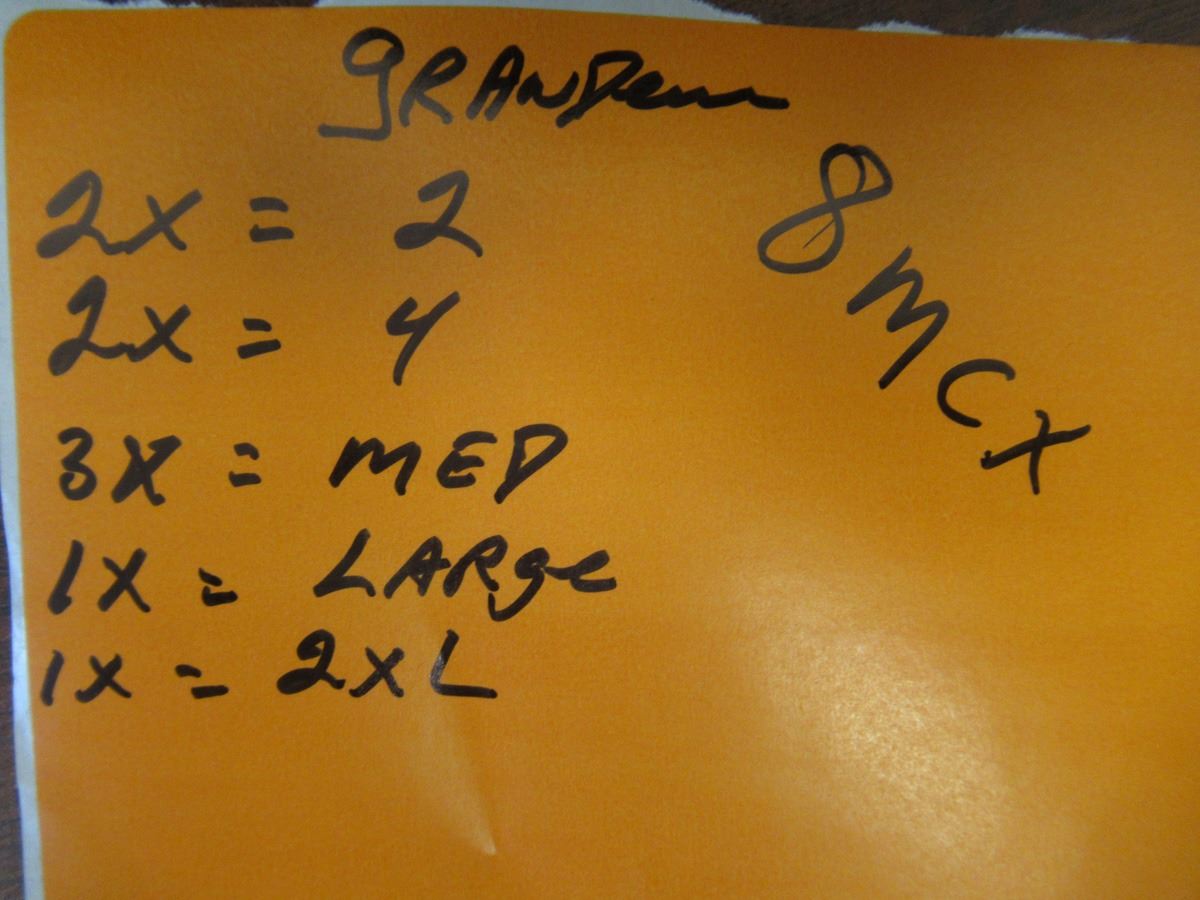 2x = 2
2x = 4
3x = MED
1x = LARge
1x = 2XL
8 MCX